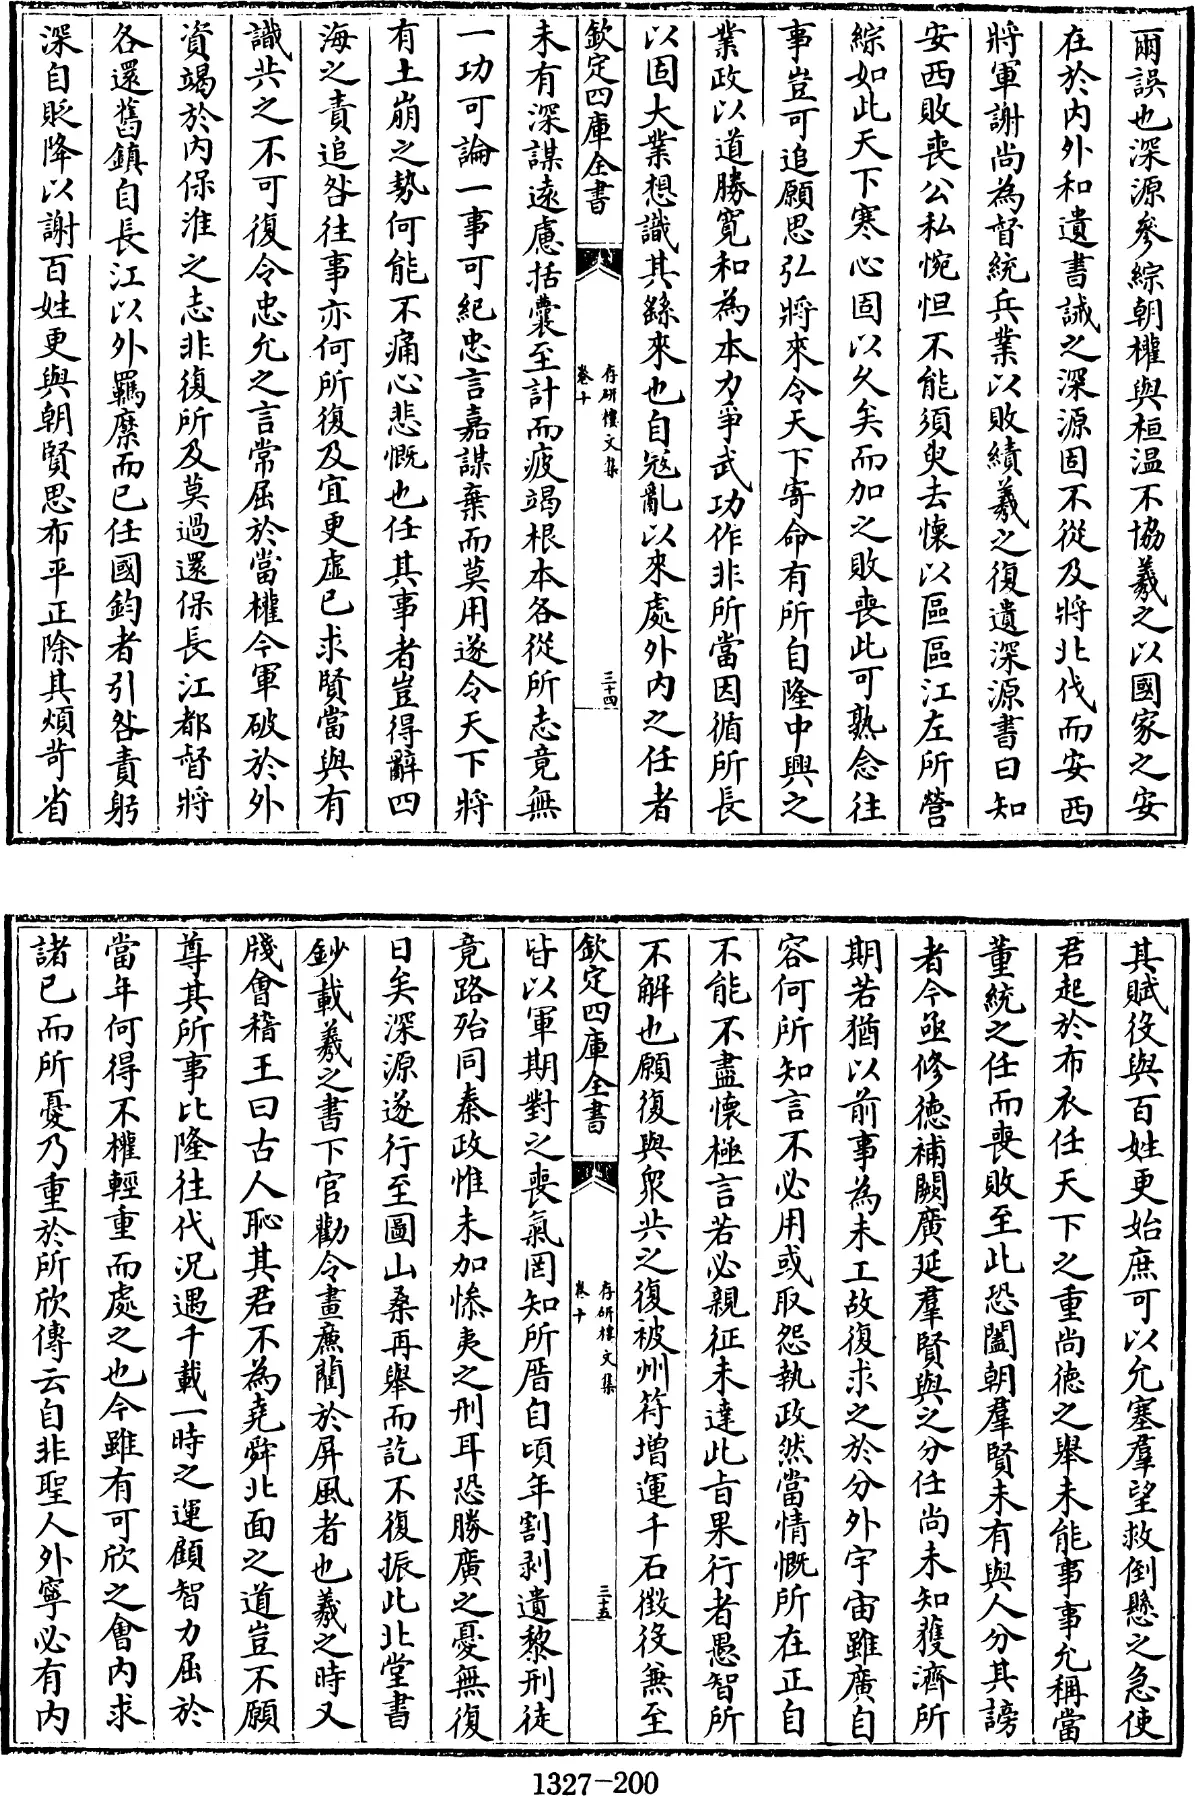 爾誤也深源參綜朝權與桓温不協羲之以國家之安
在於内外和遺書誡之深源固不從及將北伐而安西
將軍謝尚為督統兵業以敗績羲之復遺深源書曰知
安西敗喪公私惋怛不能須臾去懷以區區江左所營
綜如此天下寒心固以久矣而加之敗喪此可熟念往
事豈可追願思弘將來令天下寄命有所自隆中興之
業政以道勝寛和為本力爭武功作非所當因循所長
以固大業想識其繇來也自寇亂以來處外内之任者
欽定四庫全書
存研樓文集
卷十
三十四
未有深謀逺慮括囊至計而疲竭根本各從所志竟無
一功可論一事可紀忠言嘉謀棄而莫用遂令天下將
有土崩之勢何能不痛心悲慨也任其事者豈得辭四
海之責追咎往事亦何所復及宜更虛已求賢當與有
識共之不可復令忠允之言常屈於當權今軍破於外
資竭於内保淮之志非復所及莫過還保長江都督將
各還舊鎮自長江以外羈縻而已任國鈞者引咎責躬
深自貶降以謝百姓更與朝賢思布平正除其煩苛省
其賦役與百姓更始庶可以允塞羣望救倒懸之急使
君起於布衣任天下之重尚徳之舉未能事事允稱當
董統之任而喪敗至此恐闔朝羣賢未有與人分其謗
者今亟修德補闕廣延羣賢與之分任尚未知獲濟所
期若猶以前事為未工故復求之於分外宇宙雖廣自
容何所知言不必用或取怨執政然當情慨所在正自
不能不盡懷極言若必親征未達此旨果行者愚智所
不解也願復與衆共之復被州符增運千石徴役兼至
欽定四庫全書
存研樓文集
卷十
三十五
皆以軍期對之喪氣罔知所厝自頃年割剥遺黎刑徒
竟路殆同秦政惟未加慘夷之刑耳恐勝廣之憂無復
日矣深源遂行至圖山桑再舉而訖不復振此北堂書
鈔載羲之書下官勸令畫廉藺於屏風者也羲之時又
牋會稽王曰古人恥其君不為堯舜北面之道豈不願
尊其所事比隆往代况遇千載一時之運顧智力屈於
當年何得不權輕重而處之也今雖有可欣之會内求
諸已而所憂乃重於所欣傳云自非聖人外寧必有内
1327-200